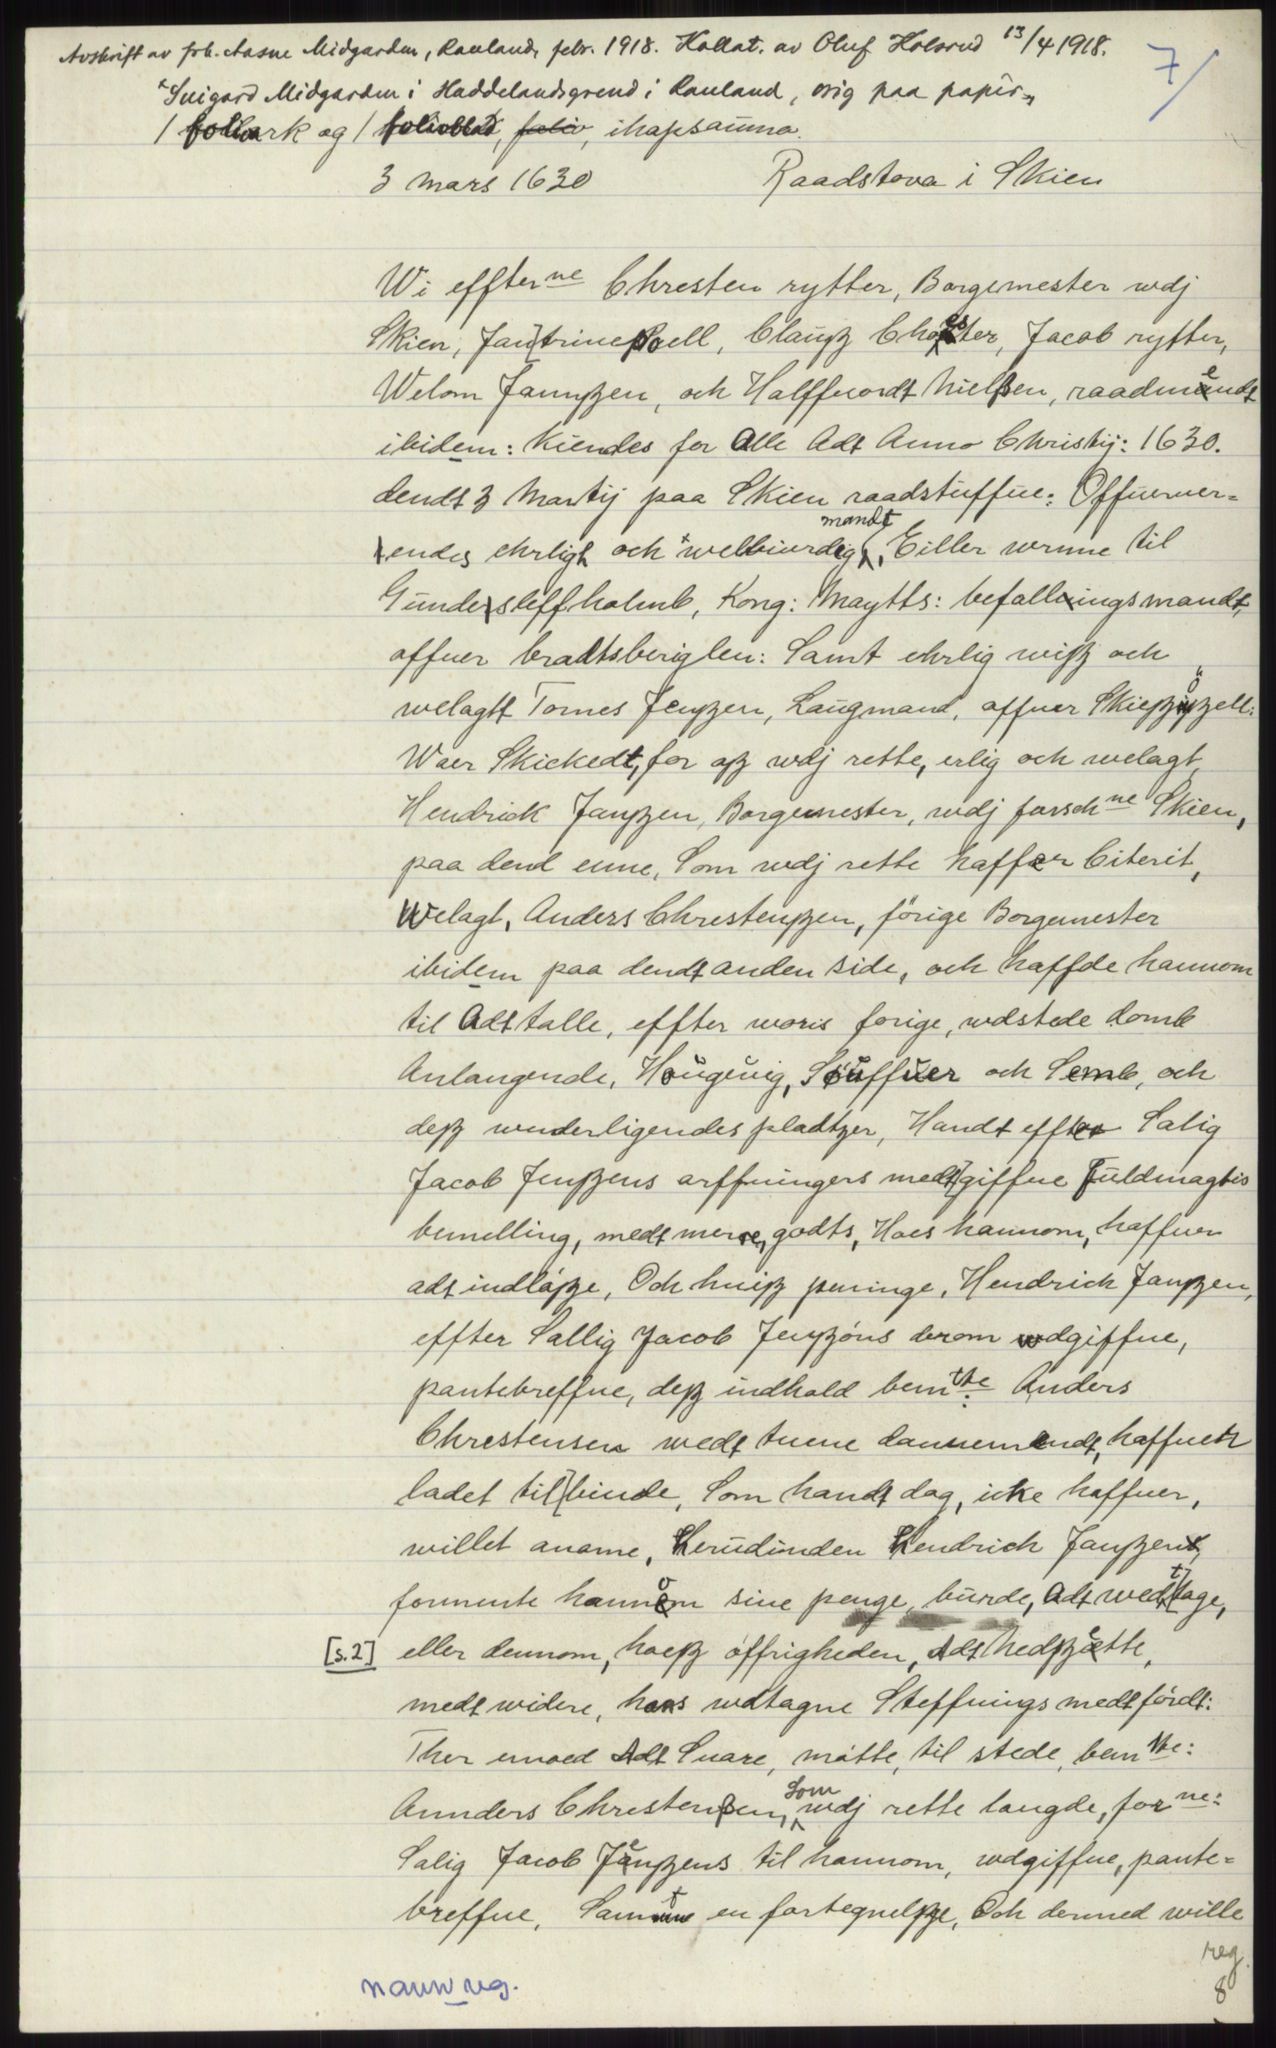 Avskrift av frk. Aasne Midgarden, Rauland, febr. 1918. Kollat. av Oluf Kolsrud 13/4 1918.
7/
Snigard Midgarden i Haddelandsgrend i Rauland, orig paa papir,
1 foliark og 1 folioblad, folio, ihopsauma.
3 mars 1630 Raadstova i Skien
Wi effter ne Chresten rytter, Borgemester wdj
Skien, Jan trinepoell, Claußz Choester, Jacob rytter,
Welom Jannßzen, och Halffuordt Nielßen, raadmendt
ibidem: Kiendes for Alle Adt Anno Christij: 1630.
dendt 3 Martij paa Skien raadstuffue: Offueruer=
endes ehrligh och welbiurdig mandt, Eiller wrnne til
Gundersleffholmb, Kong: Maytts: befallingsmandt,
offuer bradtsberiglen: Samt ehrlig wißz och
welagtt Tomes Jenßzen, Laugmand, offuer Skießzößzell:
Waer Skickedt, for oßz wdj rette, erlig och welagt,
Hendrick Janßzen, Borgemester, wdj forsch ne Skien,
paa dend enne, Som wdj rette haffer Citerit,
Welagt, Anders Chrestenßzen, förige Borgemester
ibidem paa dendt anden side, och haffde hannom
til Adt talle, effter woris forige, wdstede domb
Anlangende, Hougeuig, Söuffuer och Semb, och
deßz wnderligendes pladtzer, Handt effter Salig
Jacob Jenßzens arffuingers medt giffue Fuldmagtis
bemelling, medt merre, godts, Hoes hannom, haffuer
adt indlößze, Och huißz peninge, Hendrich Janßzen,
effter Sallig Jacob Jenßzöns derom wdgiffue,
pantebreffue, deßz indhold bem the: Anders
Chrestensen wedt tuene dannemendt, haffuer
ladet til binde, Som handt dog, icke haffuer,
willet aname, Herudinden Hendrich Janßzen,
formente hannom sine penge, burde, Adt wedt tage,
[s.2] eller dennom, hoeßz öffrigheden, Adt nedßzette,
medt widere, hans wdtagne Steffnings medtfördt:
Ther emoed Adt Suare, mötte, til stede, bem the:
Annders Chrestenßen, Som wdj rette langde, for ne:
Salig Jacob Jenßzens til hannom, wdgiffue, pante=
breffue, Samt en fortegnelßze, Och dermed wille
reg.
8